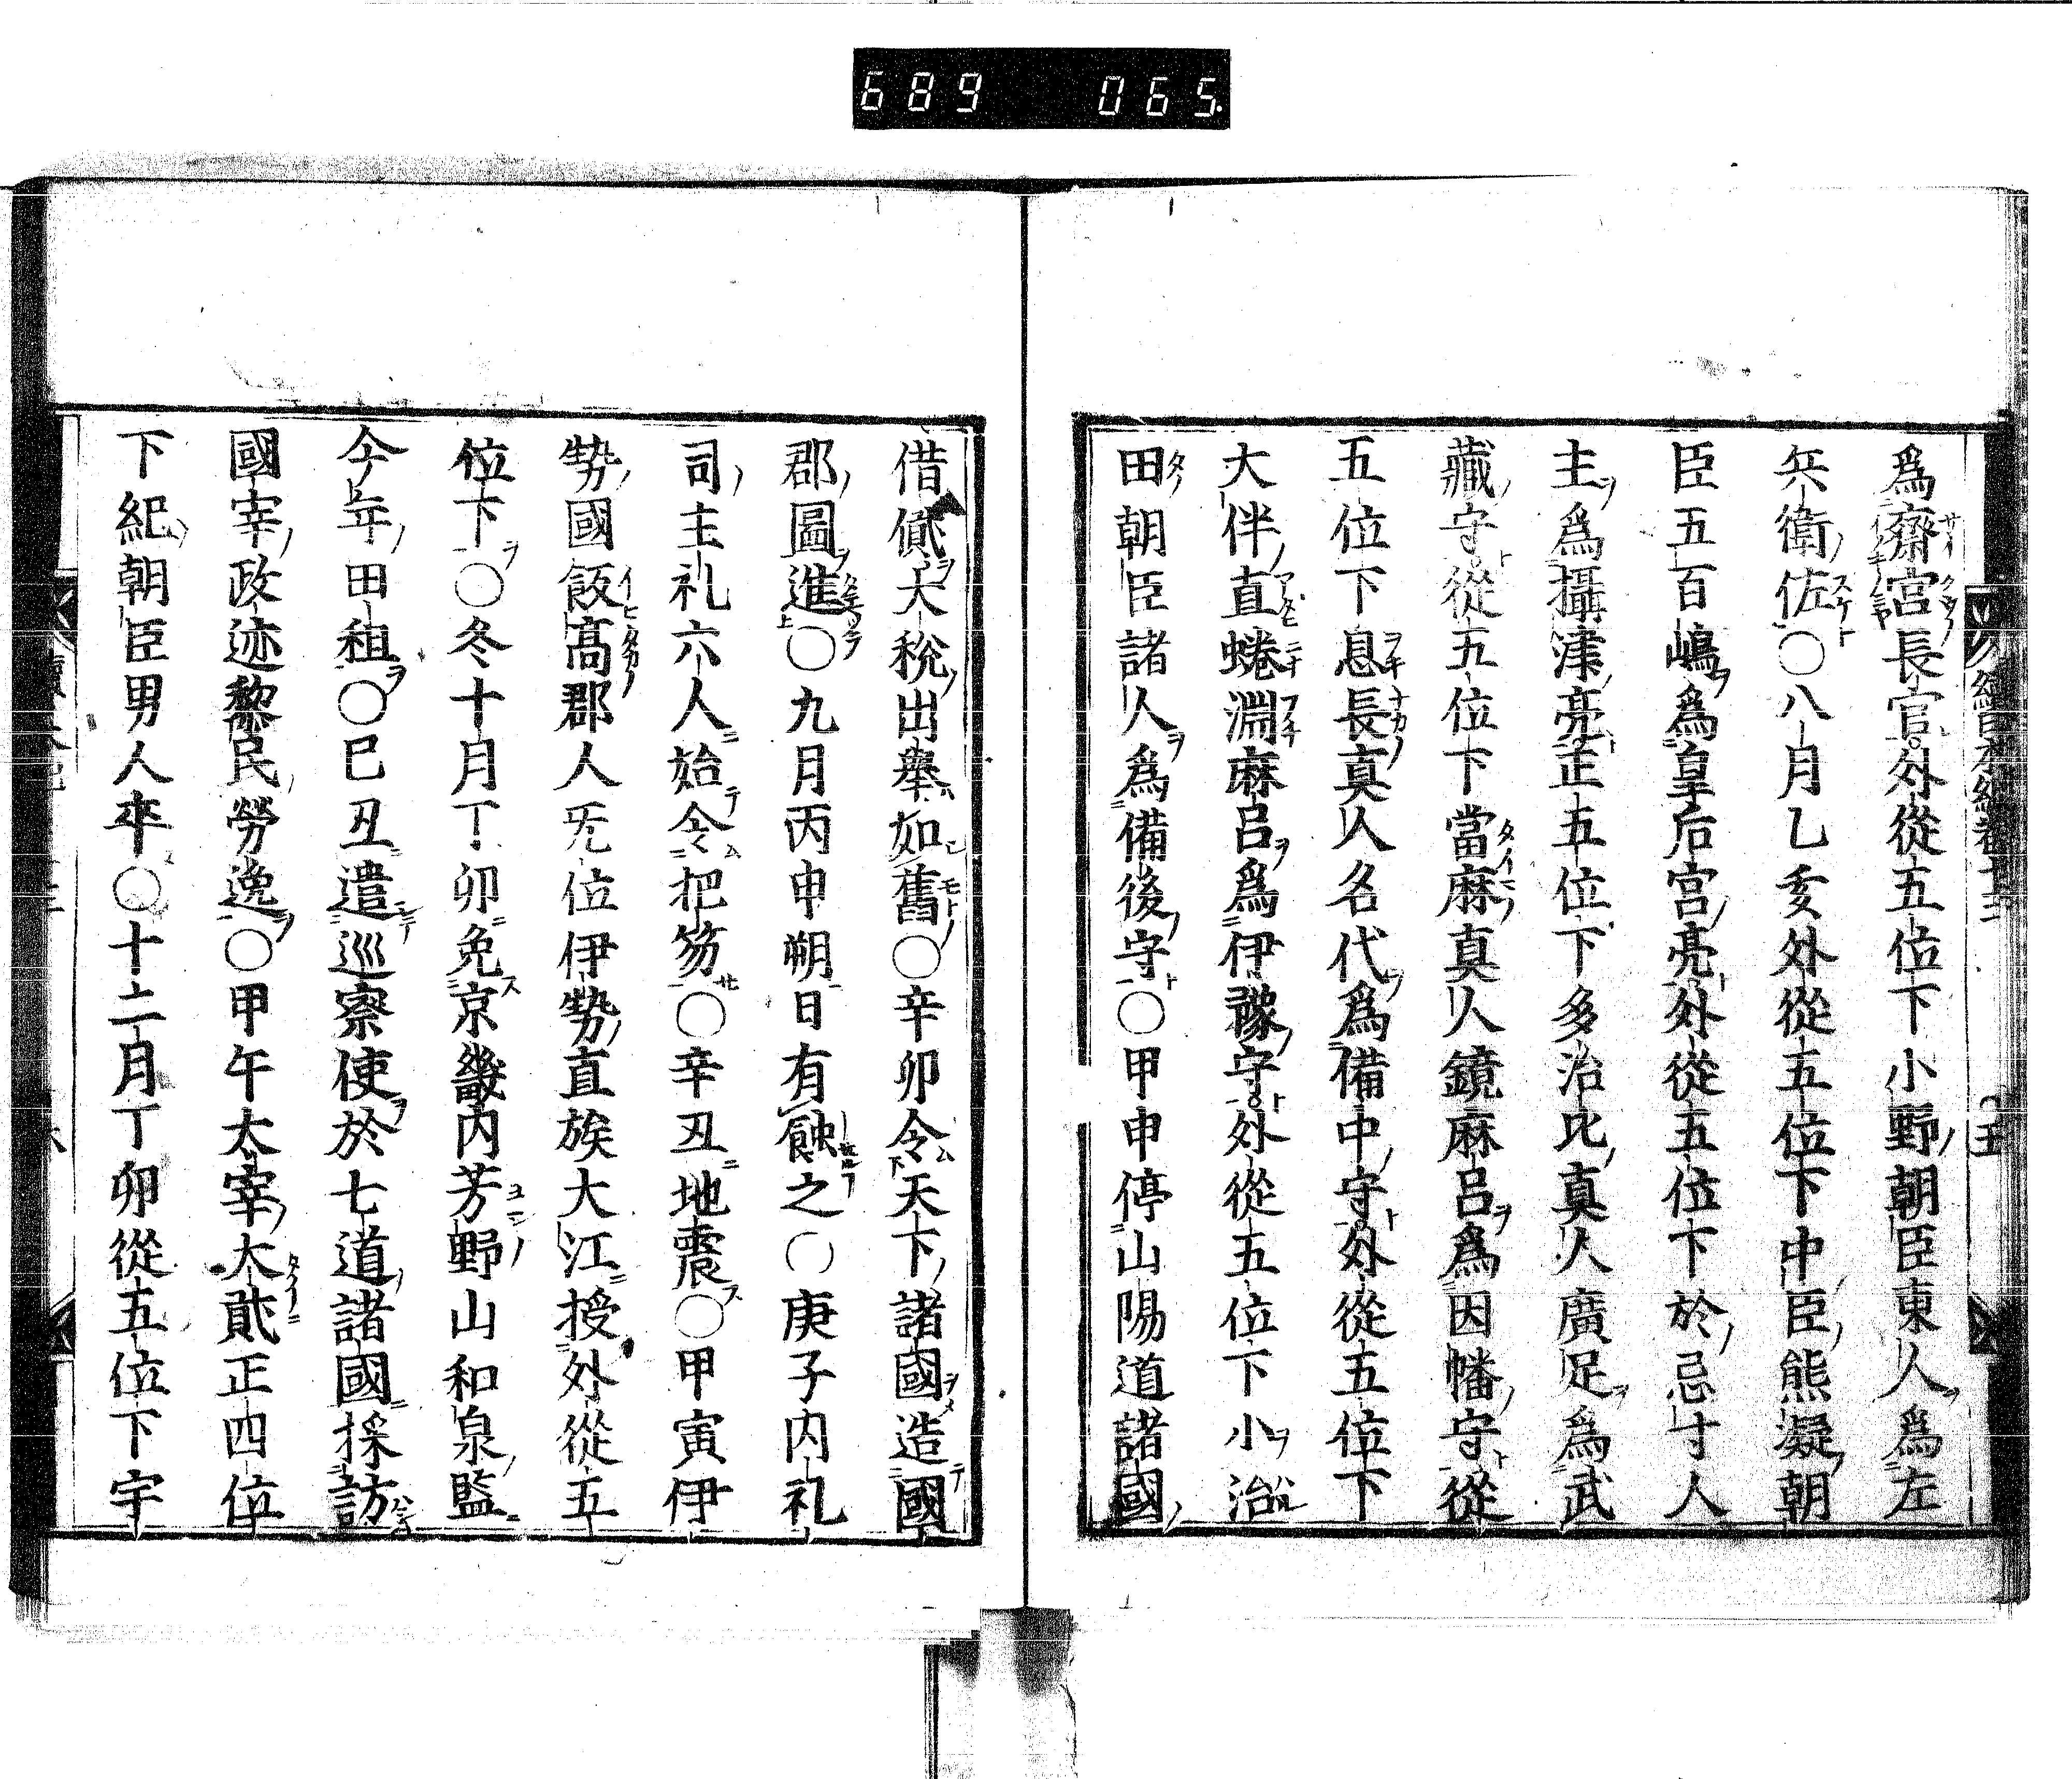 689 065
爲齋宮長官外從五位下小野朝臣東人爲左
兵衛佐〇八月乙亥外從五位下中臣熊凝朝
臣五百嶋爲皇后宮亮外從五位下於忌寸人
主爲攝津亮正五位下多治比真人廣足爲武
藏守從五位下當麻真人鏡麻呂爲因幡守從
五位下息長真人名代爲備中守外從五位下
大伴直蜷淵麻呂爲伊豫守外從五位下小治
田朝臣諸人爲備後守〇甲申停山陽道諸國
借貸大税出舉如舊〇辛卯令天下諸國造國
郡圖進〇九月丙申朔日有蝕之〇庚子内礼
司主礼六人始令把笏〇辛丑地震〇甲寅伊
勢國飯高郡人无位伊勢直族大江授外從五
位下〇冬十月丁卯免京畿内芳野山和泉監
今年田租〇巳丑遣巡察使於七道諸國採訪
國宰政迹黎民勞逸〇甲午太宰大貳正四位
下紀朝臣男人卒〇十二月丁卯從五位下宇